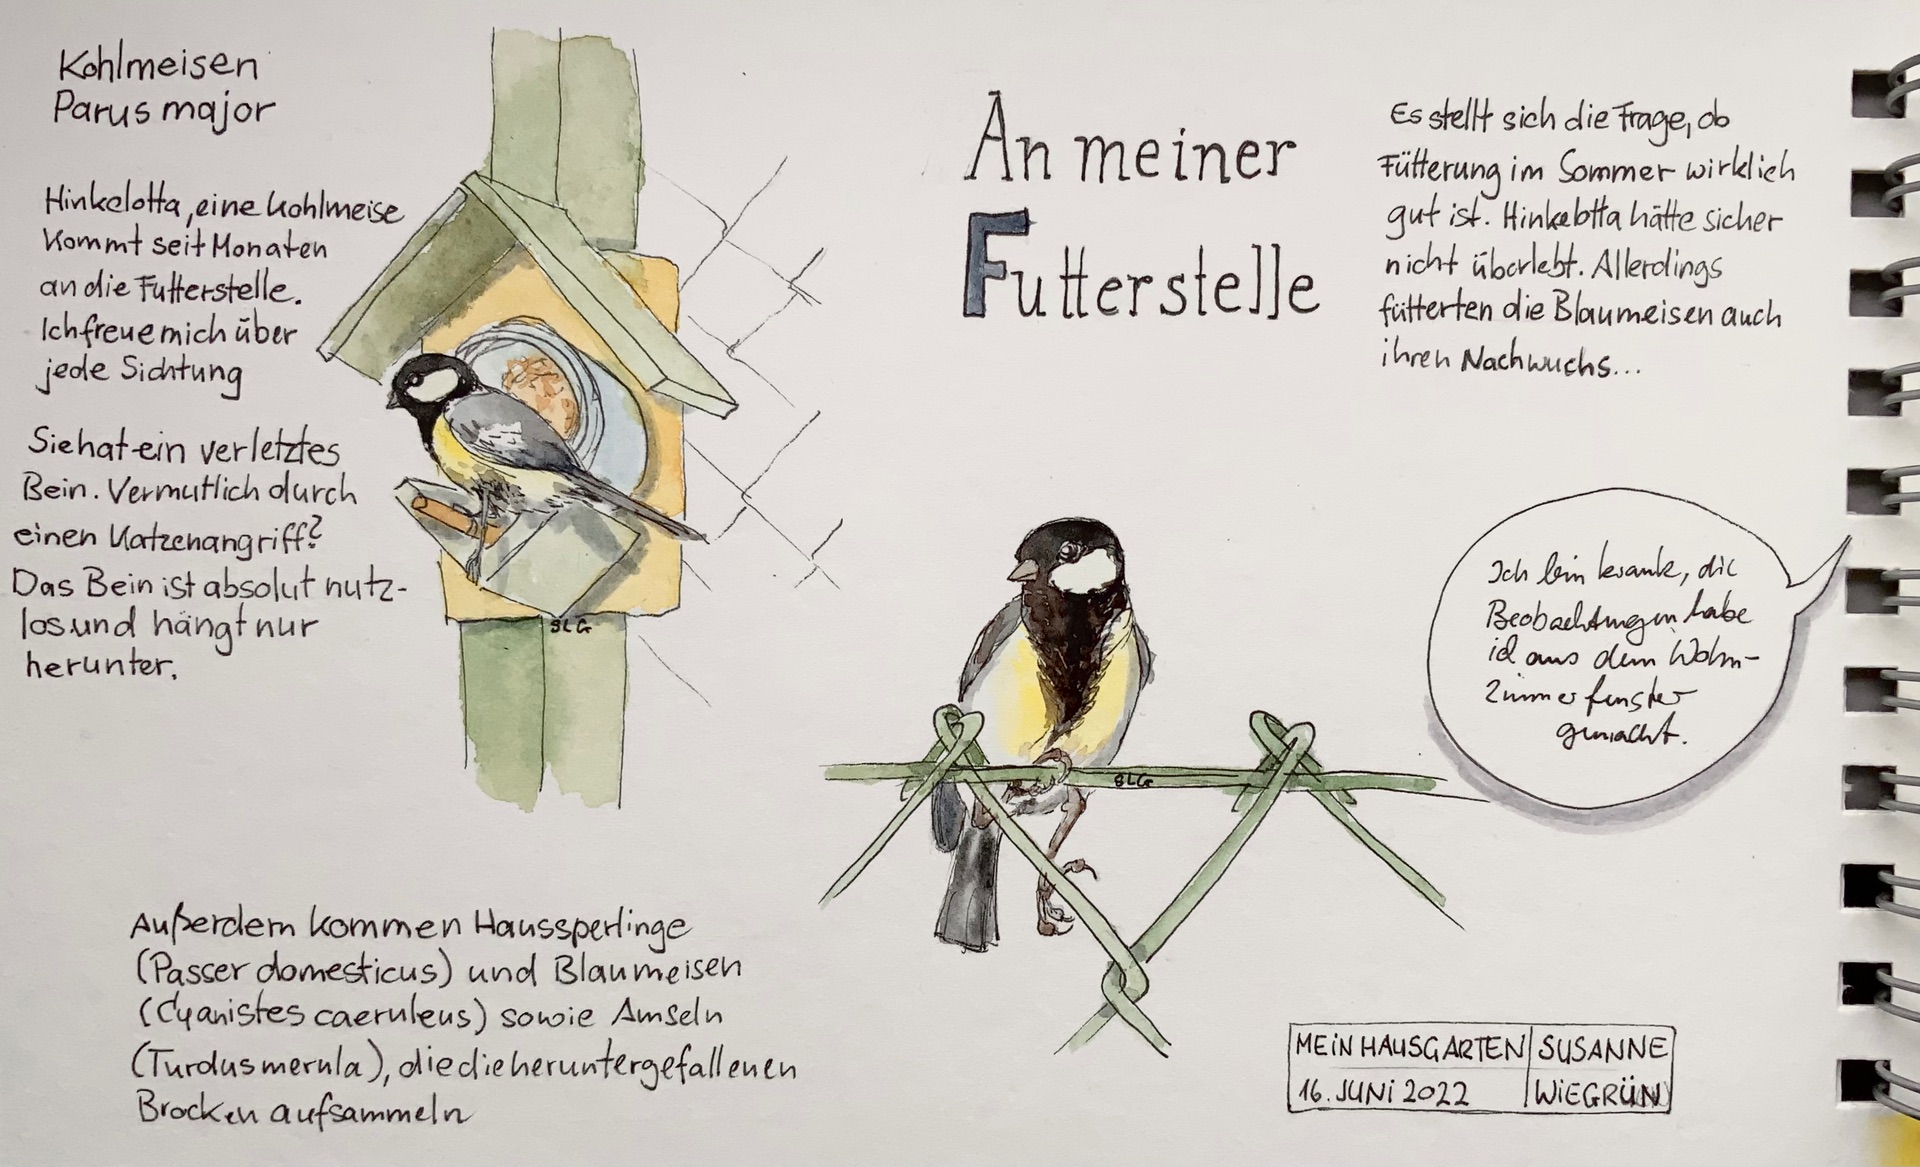 Kohlmeisen
Parus major
Hinkelotta, eine Kohlmeise
kommt seit Monaten
an die Futterstelle.
Ich freue mich über
jede Sichtung
Sie hat ein verletztes
Bein. Vermutlich durch
einen Katzenangriff?
Das Bein ist absolut nutz-
los und hängt nur
herunter.
SLG
Außerdem kommen Haussperlinge
(Passer domesticus) und Blaumeisen
(Cyanistes caeruleus) sowie Amseln
(Turdus merula), die die heruntergefallenen
Brocken aufsammeln
An meiner
Futterstelle
Es stellt sich die Frage, ob
Fütterung im Sommer wirklich
gut ist. Hinkelotta hätte sicher
nicht überlebt. Allerdings
fütterten die Blaumeisen auch
ihren Nachwuchs...
Ich bin krank, die
Beobachtungen habe
ich aus dem Wohn-
zimmerfenster
gemacht.
SLG
MEIN HAUSGARTEN SUSANNE
16. JUNI 2022 WIEGRÜN